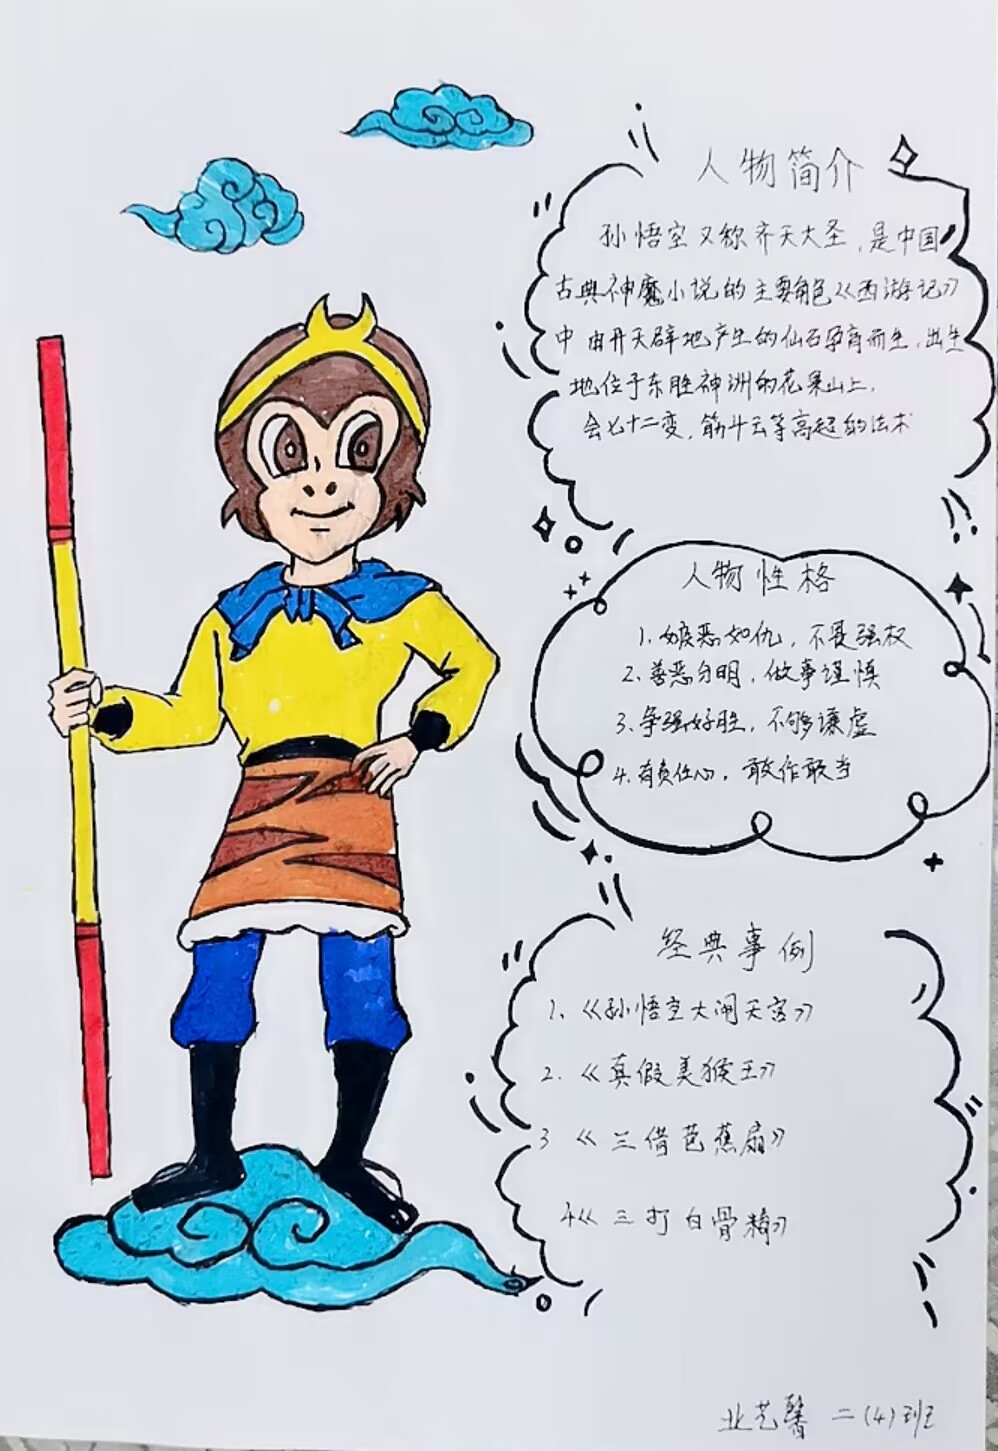 人物简介
孙悟空又称齐天大圣,是中国
古典神魔小说的主要角色《西游记》
中由开天辟地产生的仙石孕育而生,出生
地位于东胜神洲的花果山上.
会七十二变,筋斗云等高超的法术
人物性格
1.嫉恶如仇,不畏强权
2.善恶分明,做事谨慎
3.争强好胜,不够谦虚
4.有负任心,敢作敢当
经典事例
1、《孙悟空大闹天宫》
2.《真假美猴王》
3《三借芭蕉扇》
4《三打白骨精》
业艺馨 二(4)班